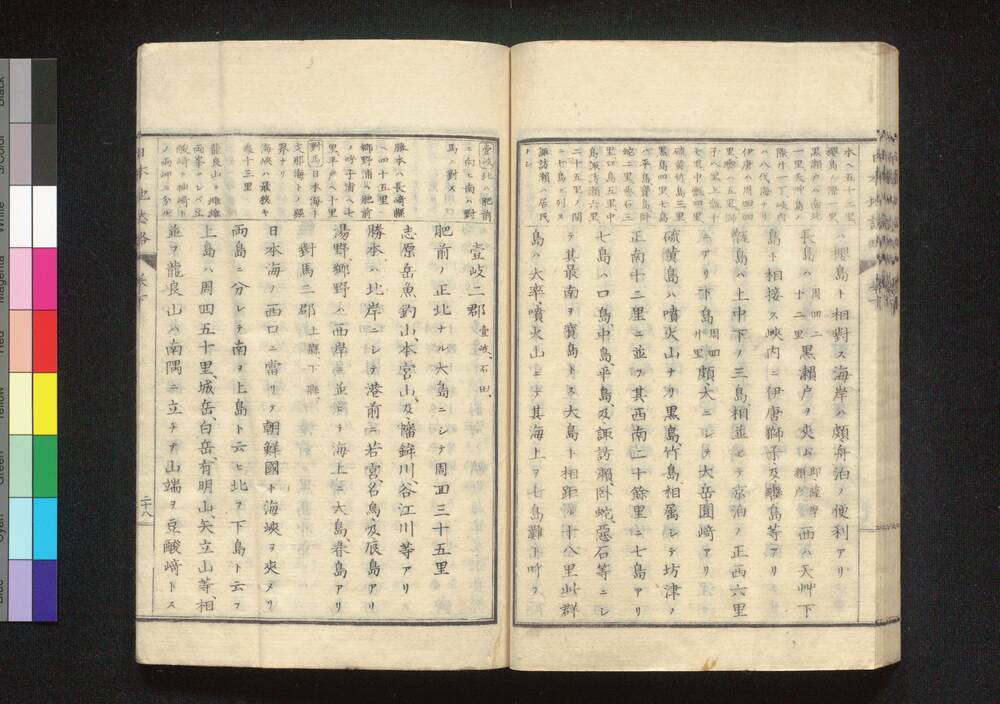 ハ櫻島ト相對ス海岸ハ頗舟泊ノ便利アリ
長島ハ周四二十二里黒瀬戸ヲ夾ム西ハ天艸下
島ト相接ス峽内ニ伊唐獅子及 島等アリ
甑島ハ上中下ノ三島相並ビテ京泊ノ正西六里
ニアリ下島周四廿里頗大ニシテ大岳圓崎アリ
硫黄島ハ噴火山ナリ黒島、竹島、相属シテ坊津ノ
正南十二里ニ並ブ其西南二十餘里ニ七島アリ
七島ハ口島中島平島及、諏訪瀬、臥蛇、惡石等ニシ
テ其最南ヲ寶島トス大島ト相距 十八里此群
島ハ大率噴火山ニシテ其海上ヲ七島灘ト呼フ
水ヘ五十二里
櫻島ノ際
黒瀬戸ハ南北
一里天艸島ノ
際廿一丁峽内
ハ八代海ナリ
伊唐ハ周四四
里 ハ五里獅
子ハ
七島中
硫黄竹島三里
黒島四里七島
ハ平島寶島
蛇二里惡石三
里口島五里中
島諏訪瀬六里
二十五里ノ間
ニ七島ヲ列ス
諏訪瀬ハ居民
ナシ
壹岐二郡 壹岐、石田、
肥前ノ正北ナル大島ニシテ周四三十五里
志原岳魚釣山、本宮山、及、幡鉾川、谷江川等アリ
勝本、ハ北岸ニシテ港前ニ若宮、名烏、及辰島アリ
湯野、郷野、ハ西岸ニ並ビテ海上ニ大島、春島アリ
對馬二郡 上縣、下縣、
日本海ノ西口ニ當リテ朝鮮國ト海峽ヲ夾メリ
兩島ニ分レテ南ヲ上島ト云ヒ北ヲ下島ト云フ
上島ハ周四五十里、城岳、白岳、有明山、矢立山等、相
並ヲ龍良山ハ南隅ニ立チテ山端ヲ豆酘﨑トス
壹岐北ハ肥前
ニ向ヒ南ハ對
馬ニ對ス
勝本ハ長崎縣
ヘ四十五里
郷野浦ハ肥前
ノ呼子浦ヘ七
里平戸ヘ十里
對馬日本海ト
支那海トノ經
界ナリ
海峽ハ最狹キ
處十三里
龍良山ヲ雌雄
兩峯
﨑ト神﨑ト
ノ兩岬ニ分ル
日本地誌略 巻下
二十八